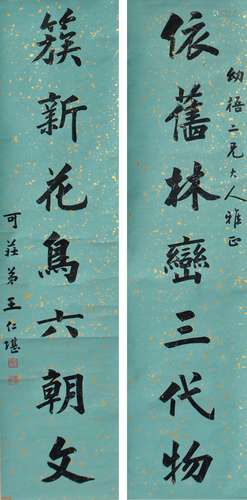 依舊林巒三代物
幼梧二兄大人雅正
簇新花鳥六朝文
可莊弟王仁堪